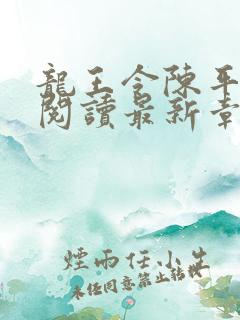 龍王令陳平
閱讀最新章
煙雨任小生
未任同意禁止轉載